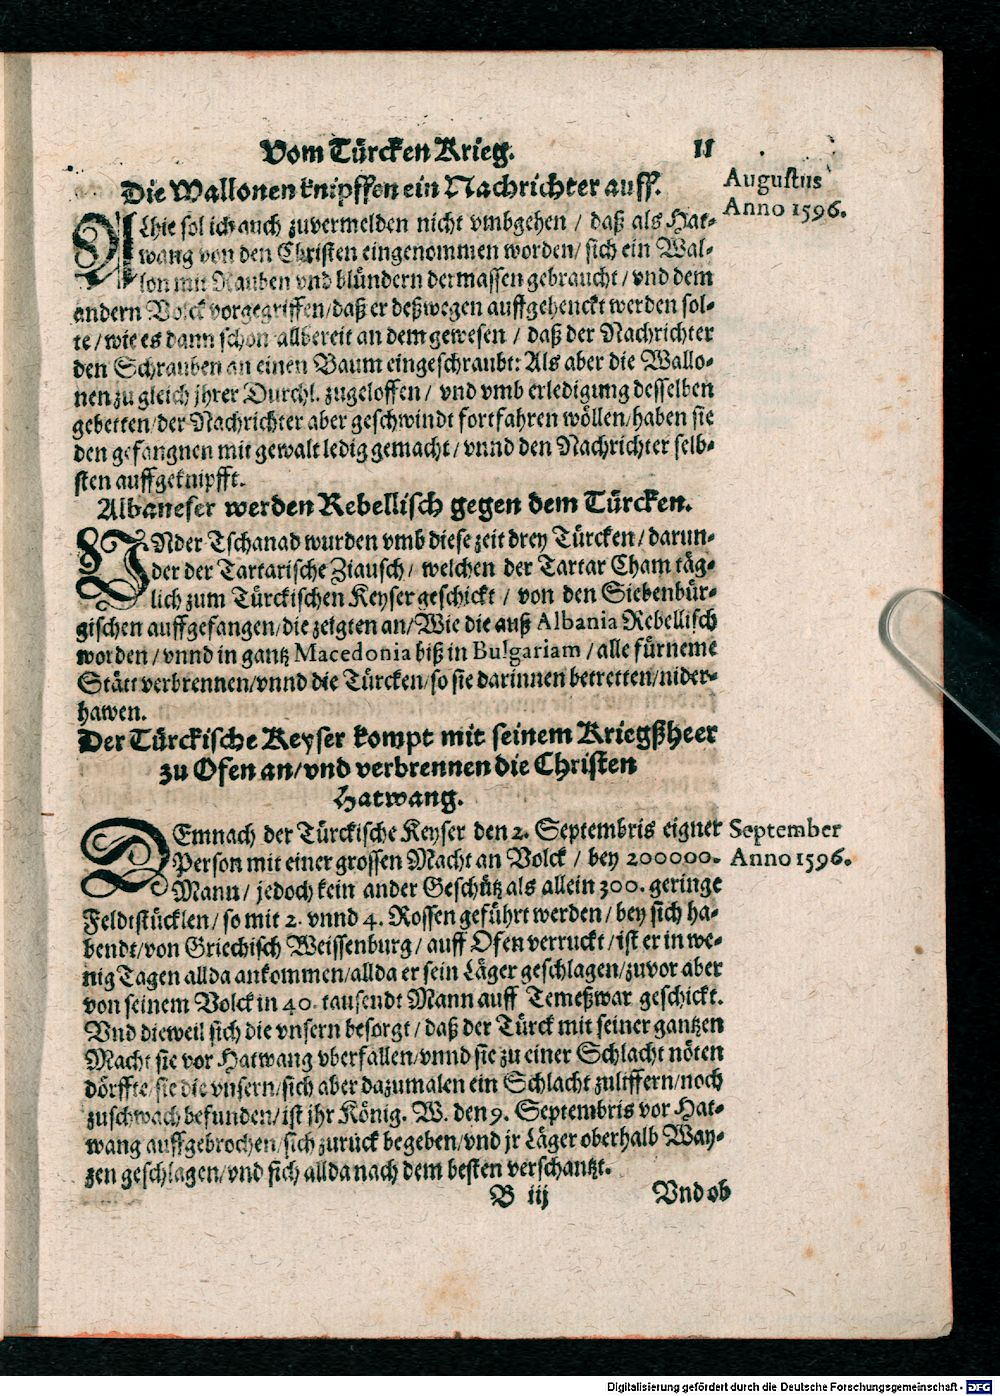 Vom Türcken Krieg. 11
Die Wallonen knipffen ein Nachrichter auff.
Augustus
Anno 1596.
Alhie sol ich auch zuvermelden nicht vmbgehen / daß als Hat-
wang von den Christen eingenommen worden / sich ein Wal-
lon mit Rauben vnd blündern dermassen gebraucht / vnd dem
andern Volck vorgegriffen / daß er deßwegen auffgehenckt werden sol-
te / wie es dann schon allbereit an dem gewesen / daß der Nachrichter
den Schrauben an einen Baum eingeschraubt: Als aber die Wallo-
nen zu gleich jhrer Durchl. zugeloffen / vnd vmb erledigung desselben
gebetten / der Nachrichter aber geschwindt fortfahren wöllen / haben sie
den gefangnen mit gewalt ledig gemacht / vnnd den Nachrichter selb-
sten auffgeknipfft.
Albaneser werden Rebellisch gegen dem Türcken.
VNder Tschanad wurden vmb diese zeit drey Türcken / darun-
der der Tartarische Ziausch / welchen der Tartar Cham täg-
lich zum Türckischen Keyser geschickt / von den Siebenbür-
gischen auffgefangen / die zeigten an / Wie die auß Albania Rebellisch
worden / vnnd in gantz Macedonia biß in Bulgariam / alle fürneme
Stätt verbrennen / vnnd die Türcken / so sie darinnen betretten / nider-
hawen.
Der Türckische Keyser kompt mit seinem Kriegßheer
zu Ofen an / vnd verbrennen die Christen
Hatwang.
September
Anno 1596.
DEmnach der Türckische Keyser den 2. Septembris eigner
Person mit einer grossen Macht an Volck / bey 200000.
Mann / jedoch kein ander Geschütz als allein 300. geringe
Feldtstücklen / so mit 2. vnnd 4. Rossen geführt werden / bey sich ha-
bendt / von Griechisch Weissenburg / auff Ofen verruckt / ist er in we-
nig Tagen allda ankommen / allda er sein Läger geschlagen / zuvor aber
von seinem Volck in 40. tausendt Mann auff Temeßwar geschickt.
Vnd dieweil sich die vnsern besorgt / daß der Türck mit seiner gantzen
Macht sie vor Hatwang vberfallen / vnnd sie zu einer Schlacht nöten
dörffte / sie die vnsern / sich aber dazumalen ein Schlacht zuliffern / noch
zuschwach befunden / ist jhr König. W. den 9. Septembris vor Hat-
wang auffgebrochen / sich zurück begeben / vnd jr Läger oberhalb Way-
zen geschlagen / vnd sich allda nach dem besten verschantzt.
B iij Vnd ob
Digitalisierung gefördert durch die Deutsche Forschungsgemeinschaft - DFG